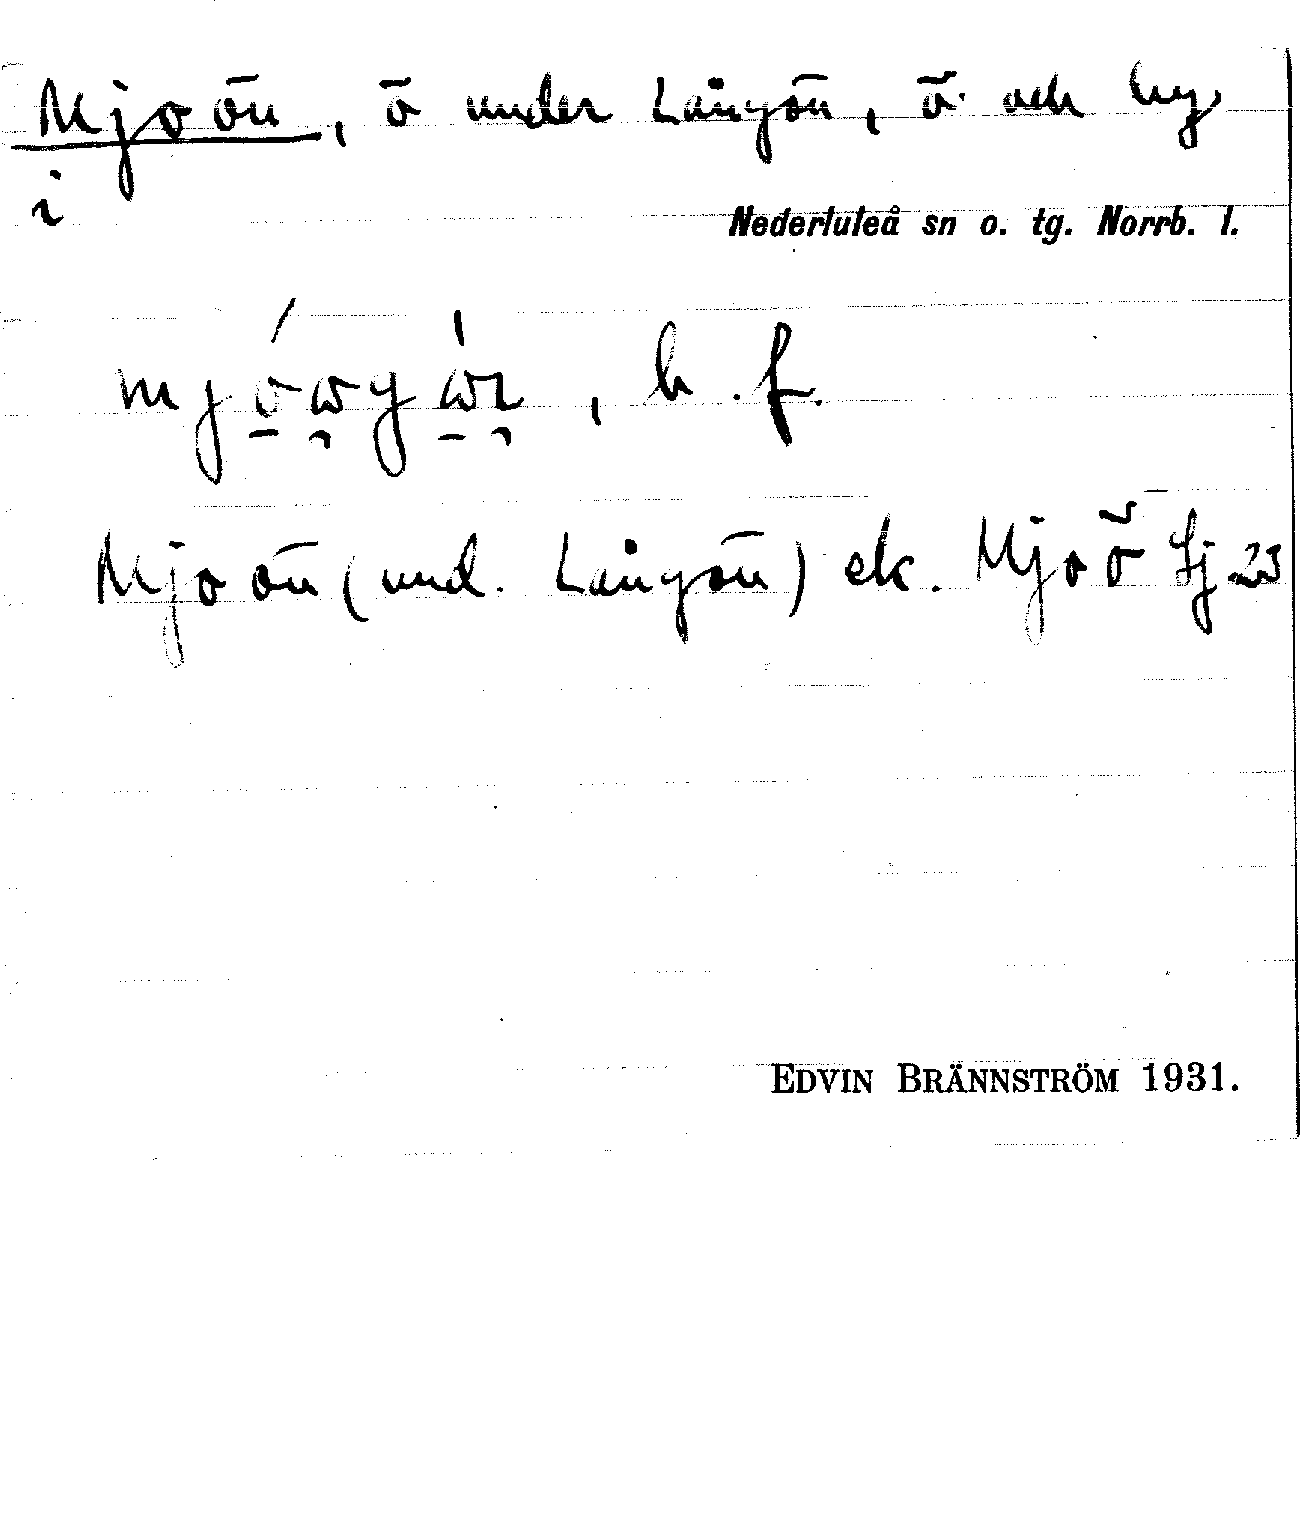 Mjoön, ö under Långön, ö och by
i
Nederluleå sn o. tg. Norrb. l.
b. f.
Mjoön (und. Långön) ek. Mjoö Sj 23
EDVIN BRÄNNSTRÖM 1931.